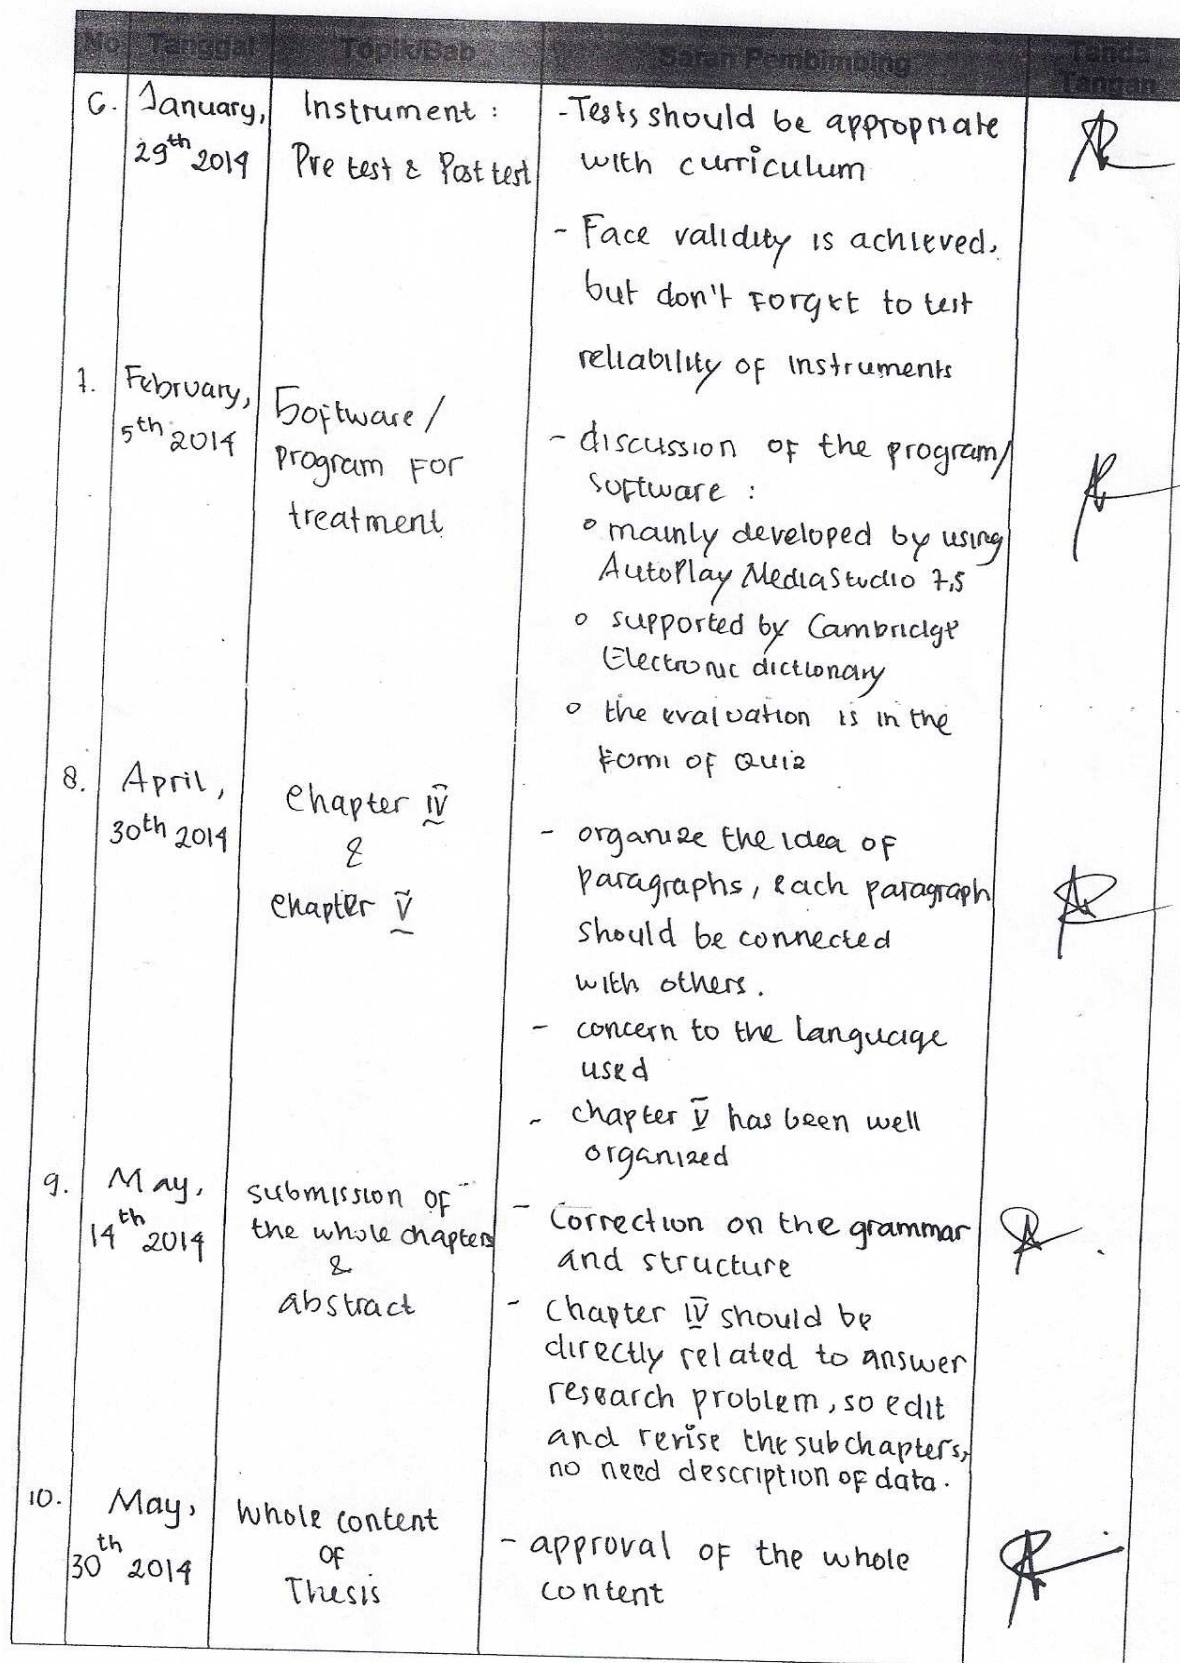 No Tanggal Topik/Bab Saran Pembimbing Tanda Tangan
6. January, 29th 2014
Instrument :
Pre test & Post test
- Tests should be appropriate
with curriculum
- Face validity is achieved,
but don't forget to test
reliability of instruments
7. February, 5th 2014
Software /
program for
treatment
- discussion of the program/
software :
o mainly developed by using
AutoPlay MediaStudio 7,5
o supported by Cambridge
Electronic dictionary
o the evaluation is in the
form of Quiz
8. April, 30th 2014
Chapter IV
&
Chapter V
- organize the idea of
paragraphs, each paragraph
should be connected
with others.
- concern to the language
used
- chapter V has been well
organized
9. May, 14th 2014
submission of
the whole chapters
&
abstract
- Correction on the grammar
and structure
- Chapter IV should be
directly related to answer
research problem, so edit
and revise the subchapters,
no need description of data.
10. May, 30th 2014
Whole content
of
Thesis
- approval of the whole
content